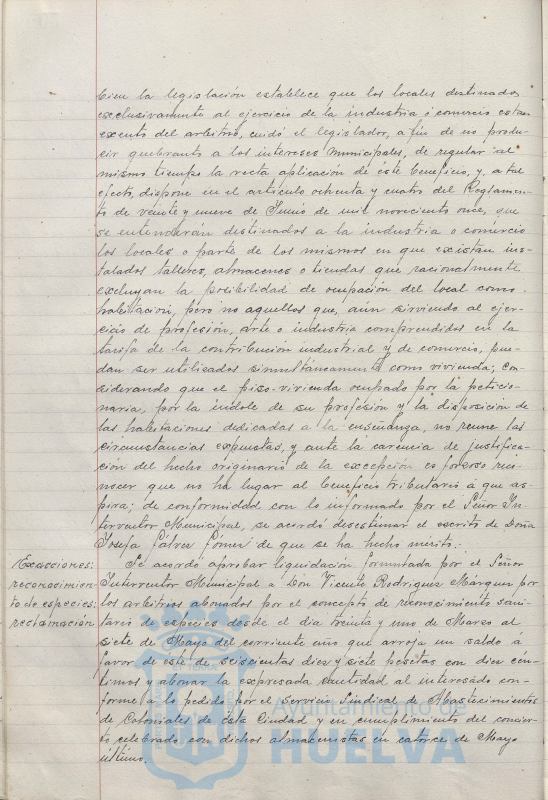 bien la legislación establece que los locales destinados
exclusivamente al ejercicio de la industria o comercio estan
exento del arbitrio, cuidó el legislador, a fin de no produ-
cir quebranto a los intereses municipales, de regular al
mismo tiempo la recta aplicación de este beneficio, y, a tal
efecto, dispone en el artículo ochenta y cuatro del Reglamen-
to de veinte y nueve de Junio de mil novecientos once, que
se entenderán destinados a la industria o comercio
los locales o parte de los mismos en que existan ins-
talados talleres, almacenes o tiendas que racionalmente
excluyan la posibilidad de ocupación del local como
habitación, pero no aquellos que, aún sirviendo al ejer-
cicio de profesión, arte o industria comprendidos en la
tarifa de la contribución industrial y de comercio, pue-
dan ser utilizados simultáneamente como vivienda; con-
siderando que el piso-vivienda ocupado por la peticio-
naria, por la índole de su profesión y la disposición de
las habitaciones dedicadas a la enseñanza, no reune las
circunstancias expuestas, y ante la carencia de justifica-
ción del hecho originario de la excepción es forzoso reco-
nocer que no ha lugar al beneficio tributario a que as-
pira; de conformidad con lo informado por el Señor In-
terventor Municipal, se acordó desestimar el escrito de Doña
Josefa Gálvez Gómez de que se ha hecho mérito.
Exacciones: Se acordó aprobar liquidación formulada por el Señor
reconocimien- Interventor Municipal a Don Vicente Rodriguez Márquez por
to de especies: los arbitrios abonados por el concepto de reconocimiento sani-
reclamación tario de especies desde el día treinta y uno de Marzo al
siete de Mayo del corriente año que arroja un saldo á
favor de este de seiscientas diez y siete pesetas con diez cén-
timos y abonar la expresada cantidad al interesado con-
forme a lo pedido por el Servicio Sindical de Abastecimientos
de Coloniales de esta Ciudad y en cumplimiento del concier-
to celebrado con dichos almacenistas en catorce de Mayo
último.
Ayuntamiento de
HUELVA